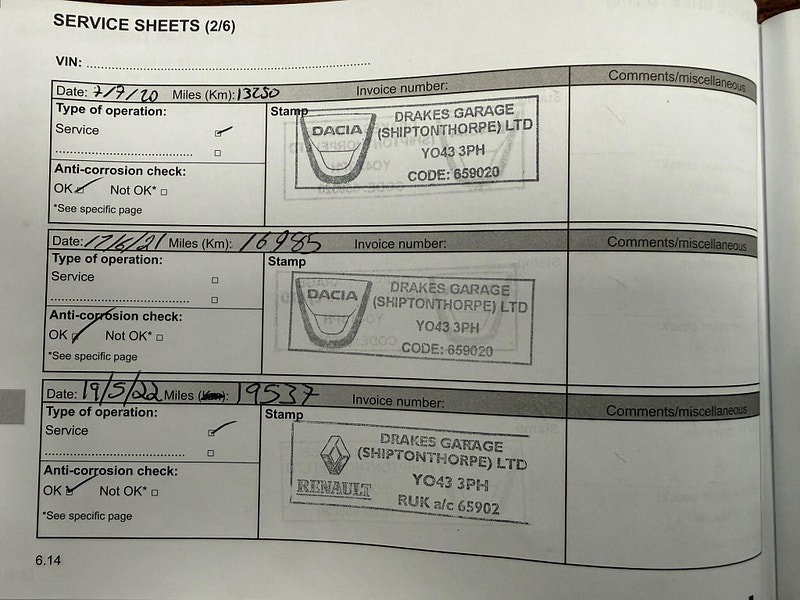 SERVICE SHEETS (2/6)
VIN:
Date: 7/7/20 Miles (Km): 13250 Invoice number: Comments/miscellaneous
Type of operation:
Service
Anti-corrosion check:
OK Not OK*
*See specific page
Stamp
DACIA
DRAKES GARAGE
(SHIPTONTHORPE) LTD
YO43 3PH
CODE: 659020
Date: 17/6/21 Miles (Km): 16985 Invoice number: Comments/miscellaneous
Type of operation:
Service
Anti-corrosion check:
OK Not OK*
*See specific page
Stamp
DACIA
DRAKES GARAGE
(SHIPTONTHORPE) LTD
YO43 3PH
CODE: 659020
Date: 19/5/22 Miles (Km): 19537 Invoice number: Comments/miscellaneous
Type of operation:
Service
Anti-corrosion check:
OK Not OK*
*See specific page
Stamp
RENAULT
DRAKES GARAGE
(SHIPTONTHORPE) LTD
YO43 3PH
RUK a/c 65902
6.14